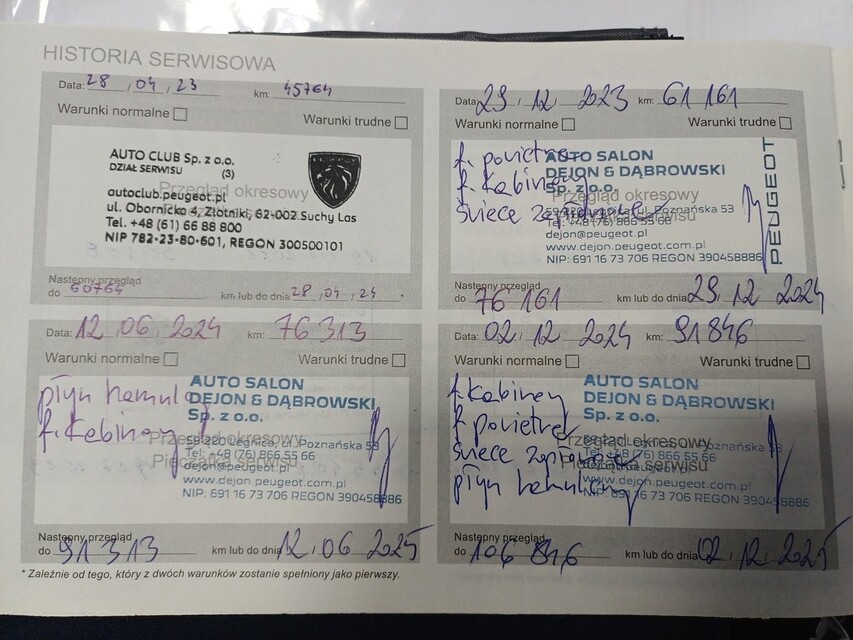 HISTORIA SERWISOWA
Data: 28 , 04 , 23 km: 45764
Warunki normalne
Warunki trudne
AUTO CLUB Sp. z o.o.
DZIAŁ SERWISU (3)
Przegląd okresowy
autoclub.peugeot.pl
ul. Obornicka 4, Złotniki, 62-002 Suchy Las
Tel. +48 (61) 66 88 800
NIP 782-23-80-601, REGON 300500101
Następny przegląd
do 60764 km lub do dnia 28 , 04 , 24 .
Data: 29 / 12 2023 km: 61 161
Warunki normalne
Warunki trudne
f. powietrza
f. Kabinowy
świece zapłonowe
AUTO SALON
DEJON & DĄBROWSKI
Sp. z o.o.
Przegląd okresowy
Poznańska 53
Tel. +48 (76) 866 55 66
dejon@peugeot.pl
www.dejon.peugeot.com.pl
NIP: 691 16 73 706 REGON 390458886
PEUGEOT
Następny przegląd
do 76 161 km lub do dnia 29 12 2024
Data: 12 . 06 . 2024 km: 76 313
Warunki normalne
Warunki trudne
płyn hamul
f. Kabinowy
AUTO SALON
DEJON & DĄBROWSKI
Sp. z o.o.
Przegląd okresowy
59-220 Legnica, ul. Poznańska 53
Pieczątka serwisu
Tel. +48 (76) 866 55 66
dejon@peugeot.pl
www.dejon.peugeot.com.pl
NIP: 691 16 73 706 REGON 390458886
Następny przegląd
do 91 313 km lub do dnia 12 . 06 2025
Data: 02 / 12 2024 km: 91 846
Warunki normalne
Warunki trudne
f. Kabinowy
f. powietrza
świece zapłonowe
płyn hamulcowy
AUTO SALON
DEJON & DĄBROWSKI
Sp. z o.o.
Przegląd okresowy
Poznańska 53
Tel. +48 (76) 866 55 66
Pieczątka serwisu
dejon@peugeot.pl
www.dejon.peugeot.com.pl
NIP: 691 16 73 706 REGON 390458886
Następny przegląd
do 106 846 km lub do dnia 02 , 12 , 2025
* Zależnie od tego, który z dwóch warunków zostanie spełniony jako pierwszy.